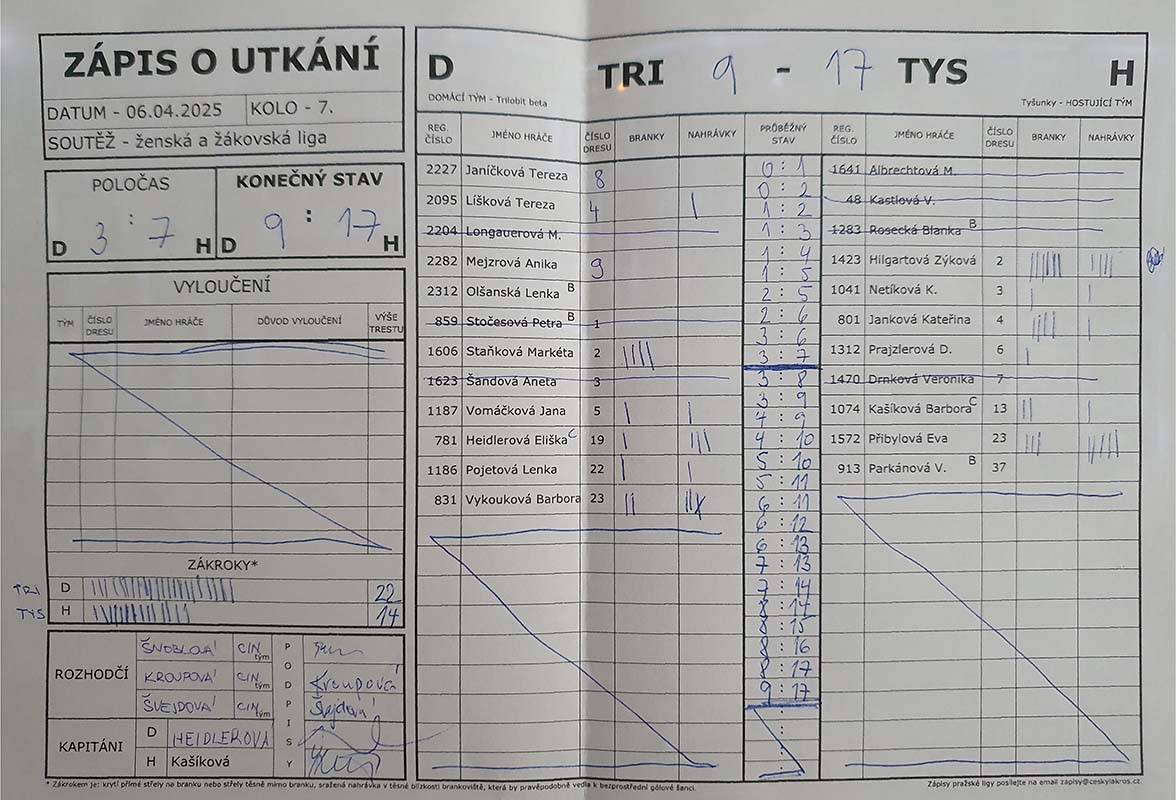 ZÁPIS O UTKÁNÍ
DATUM - 06.04.2025 KOLO - 7.
SOUTĚŽ - ženská a žákovská liga
POLOČAS
D 3 : 7 H
KONEČNÝ STAV
D 9 : 17 H
VYLOUČENÍ
TÝM ČÍSLO DRESU JMÉNO HRÁČE DŮVOD VYLOUČENÍ VÝŠE TRESTU
ZÁKROKY*
TRI D 22
TYS H 14
ROZHODČÍ
ŠNOBLOVÁ CIN tým
KROUPOVÁ CIN tým Kroupová
ŠVEJDOVÁ CIN tým Švejdová
PODPISY
KAPITÁNI
D HEIDLEROVÁ
H Kašíková
D TRI 9 - 17 TYS H
DOMÁCÍ TÝM - Trilobit beta Tyšunky - HOSTUJÍCÍ TÝM
REG. ČÍSLO JMÉNO HRÁČE ČÍSLO DRESU BRANKY NAHRÁVKY PRŮBĚŽNÝ STAV REG. ČÍSLO JMÉNO HRÁČE ČÍSLO DRESU BRANKY NAHRÁVKY
2227 Janíčková Tereza 8
2095 Líšková Tereza 4 |
2204 Longauerová M.
2282 Mejzrová Anika 9
2312 Olšanská Lenka B
859 Stočesová Petra B 1
1606 Staňková Markéta 2 ||||
1623 Šandová Aneta 3
1187 Vomáčková Jana 5 | |
781 Heidlerová Eliška C 19 | |||
1186 Pojetová Lenka 22 | |
831 Vykouková Barbora 23 ||
0 : 1
0 : 2
1 : 2
1 : 3
1 : 4
1 : 5
2 : 5
2 : 6
3 : 6
3 : 7
3 : 8
3 : 9
4 : 9
4 : 10
5 : 10
5 : 11
6 : 11
6 : 12
6 : 13
7 : 13
7 : 14
8 : 14
8 : 15
8 : 16
8 : 17
9 : 17
1641 Albrechtová M.
48 Kastlová V.
1283 Rosecká Blanka B
1423 Hilgartová Zýková 2
1041 Netíková K. 3 | |
801 Janková Kateřina 4
1312 Prajzlerová D. 6 |
1470 Drnková Veronika 7
1074 Kašíková Barbora C 13 || |
1572 Přibylová Eva 23
913 Parkánová V. B 37
* Zákrokem je: krytí přímé střely na branku nebo střely těsně mimo branku, sražená nahrávka v těsné blízkosti brankoviště, která by pravěpodobně vedla k bezprostřední gólové šanci.
Zápisy pražské ligy posílejte na email zapisy@ceskylakros.cz.